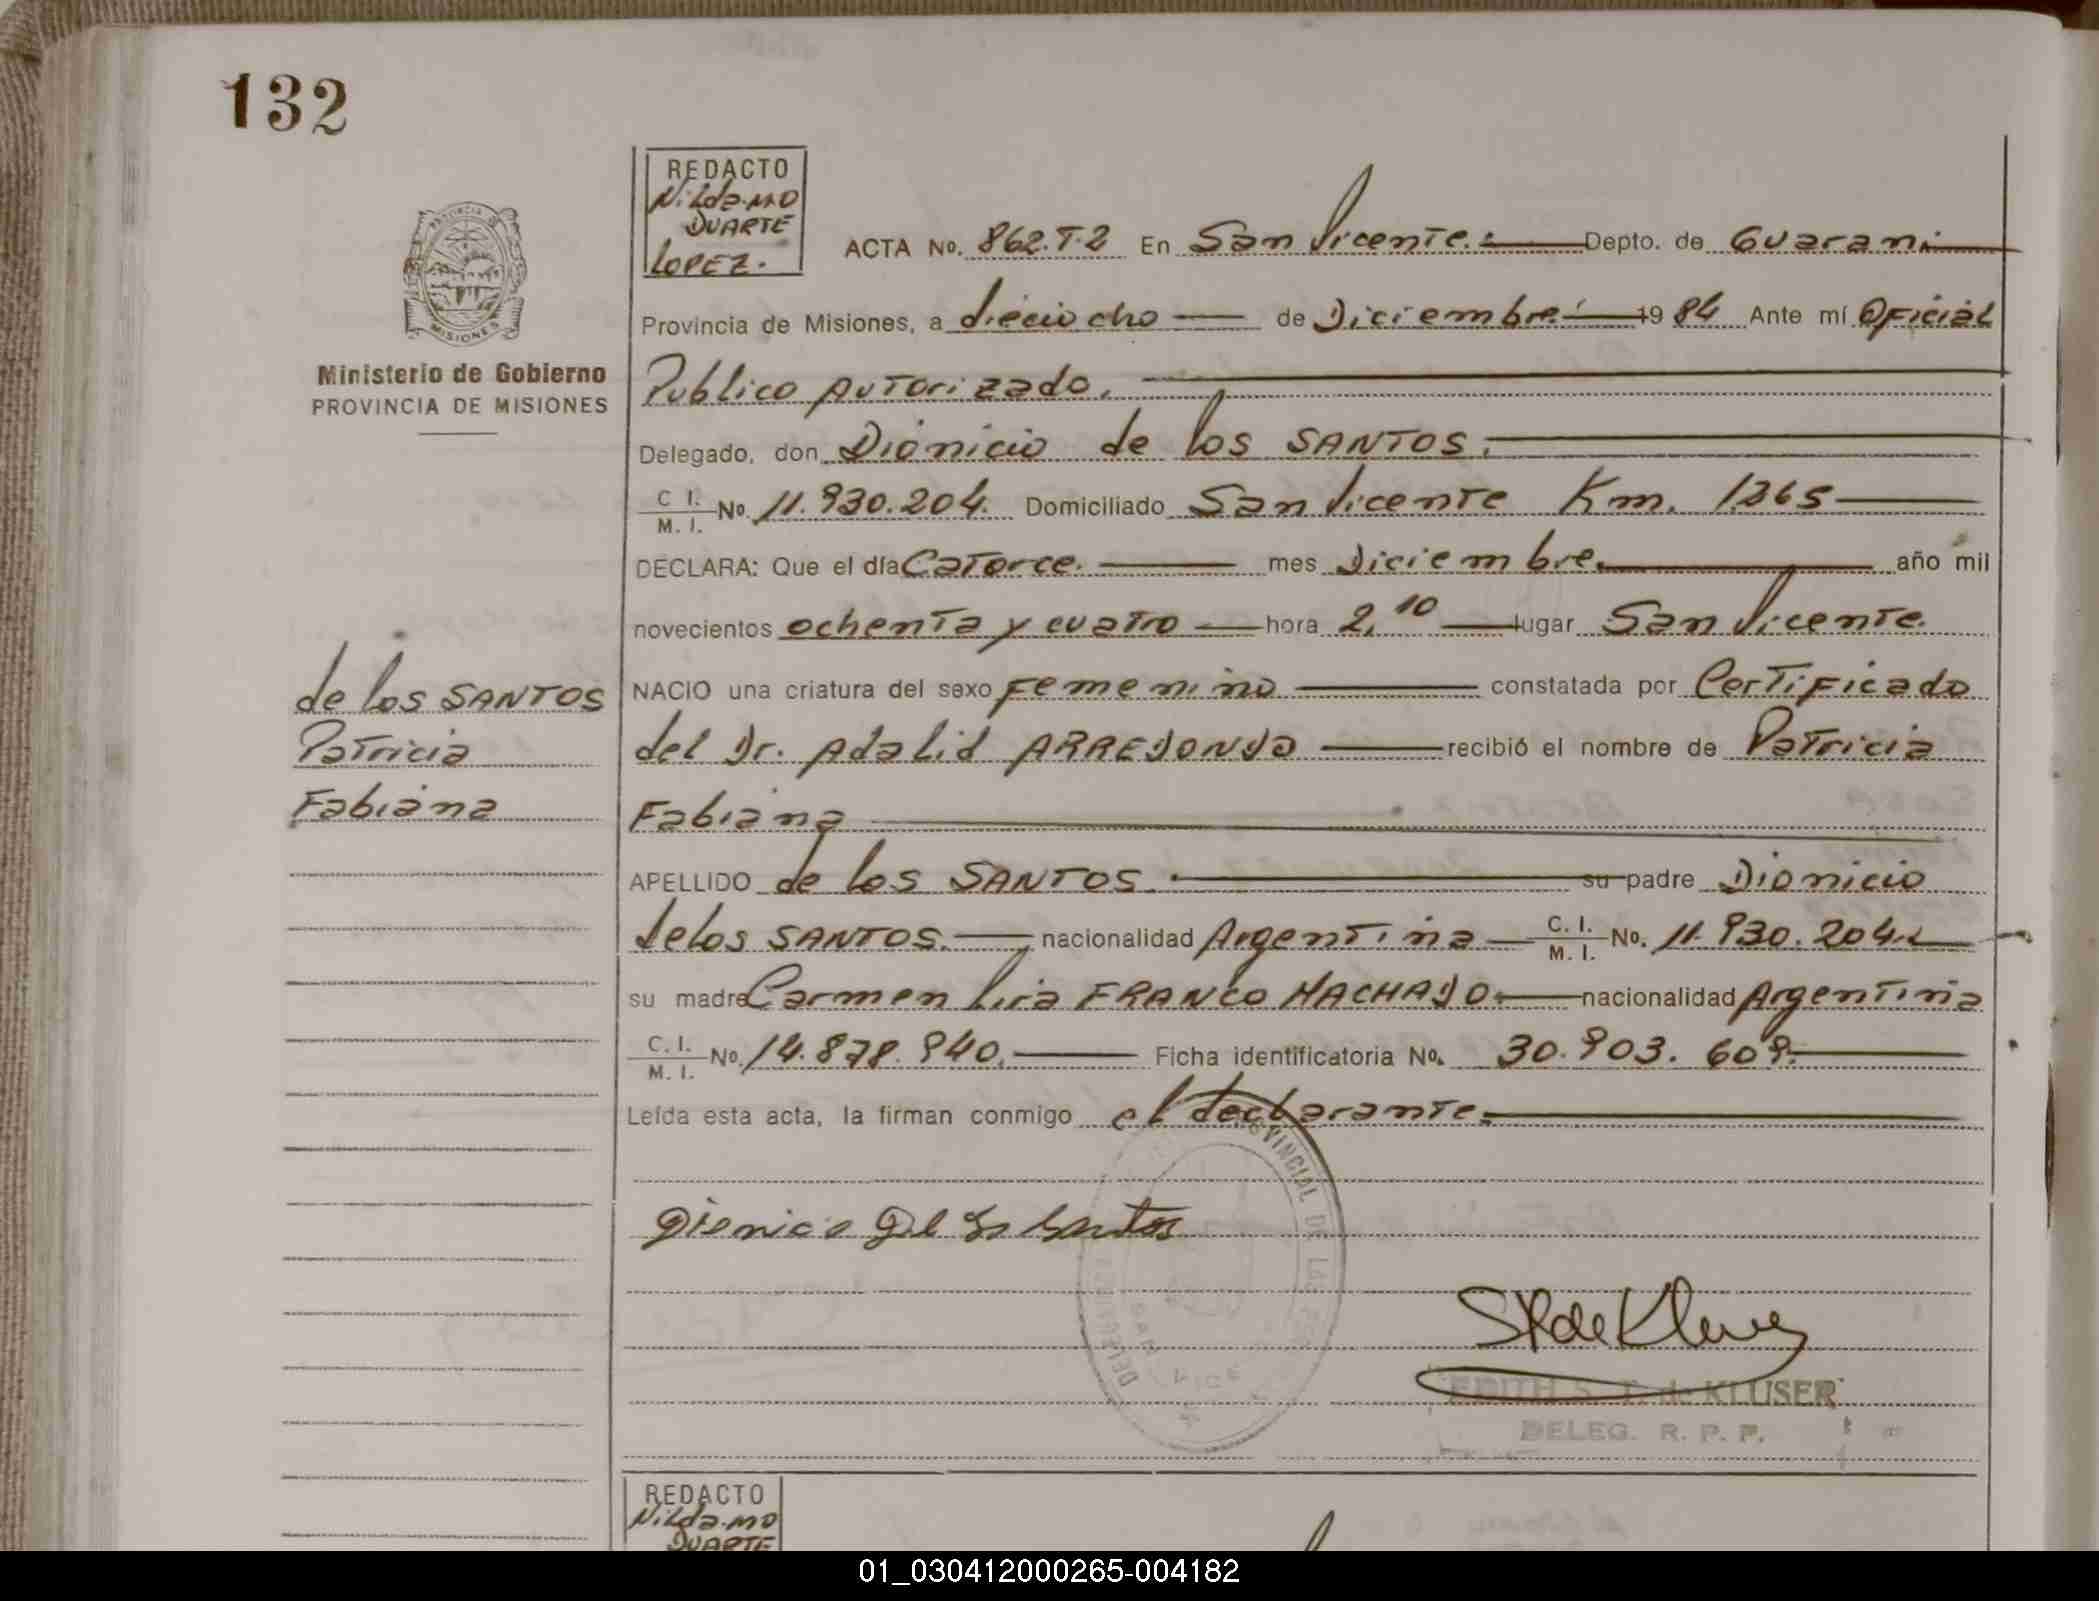 132
REDACTO
Nilda.MO
DUARTE
LOPEZ.
ACTA No. 862.T.2 En San Vicente. Depto. de Guarani
Provincia de Misiones, a dieciocho de Diciembre 1984 Ante mí Oficial
Publico Autorizado.
Delegado, don Dionicio de los SANTOS.
C I. M. I. No. 11.930.204. Domiciliado San Vicente Km. 1265
DECLARA: Que el día Catorce. mes Diciembre. año mil
novecientos ochenta y cuatro hora 2,10 lugar San Vicente.
NACIO una criatura del sexo femenino constatada por Certificado
del Dr. Adalid ARREDONDO recibió el nombre de Patricia
Fabiana
APELLIDO de los SANTOS. su padre Dionicio
de los SANTOS. nacionalidad Argentina C. I. M. I. No. 11.930.204.
su madre Carmen Liria FRANCO MACHADO. nacionalidad Argentina
C. I. M. I. No. 14.878.940. Ficha identificatoria No. 30.903.609.
Leída esta acta, la firman conmigo el declarante.
MISIONES
Ministerio de Gobierno
PROVINCIA DE MISIONES
de los SANTOS
Patricia
Fabiana
PROVINCIAL DE LAS
SAN VICE
EDITH S. T. de KLUSER
DELEG. R. P. P.
REDACTO
Nilda.MO
DUARTE
01_030412000265-004182